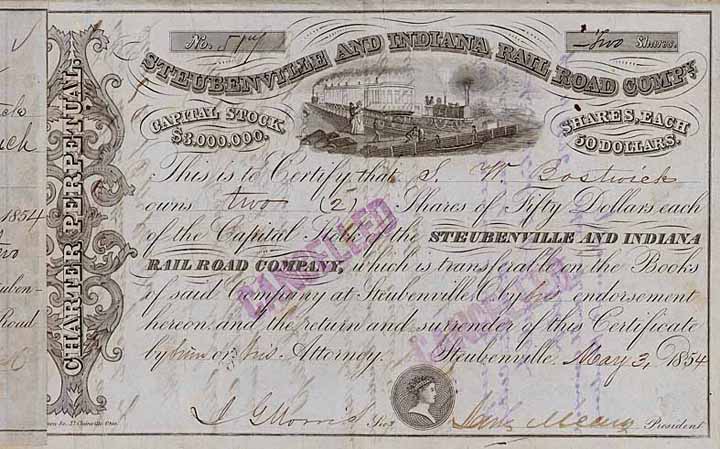 No. 517
Two Shares.
STEUBENVILLE AND INDIANA RAIL ROAD COMPY.
CAPITAL STOCK, $3,000,000.
SHARES, EACH 50 DOLLARS.
CHARTER PERPETUAL.
This is to Certify that S. W. Bostwick
owns two (2) Shares of Fifty Dollars each
of the Capital Stock of the STEUBENVILLE AND INDIANA
RAIL ROAD COMPANY, which is transferable on the Books
of said Company at Steubenville, O. by his endorsement
hereon and the return and surrender of this Certificate
by him or his Attorney. Steubenville, May 3, 1854
Morris Sec
President
CANCELLED
CANCELLED
1854
Road